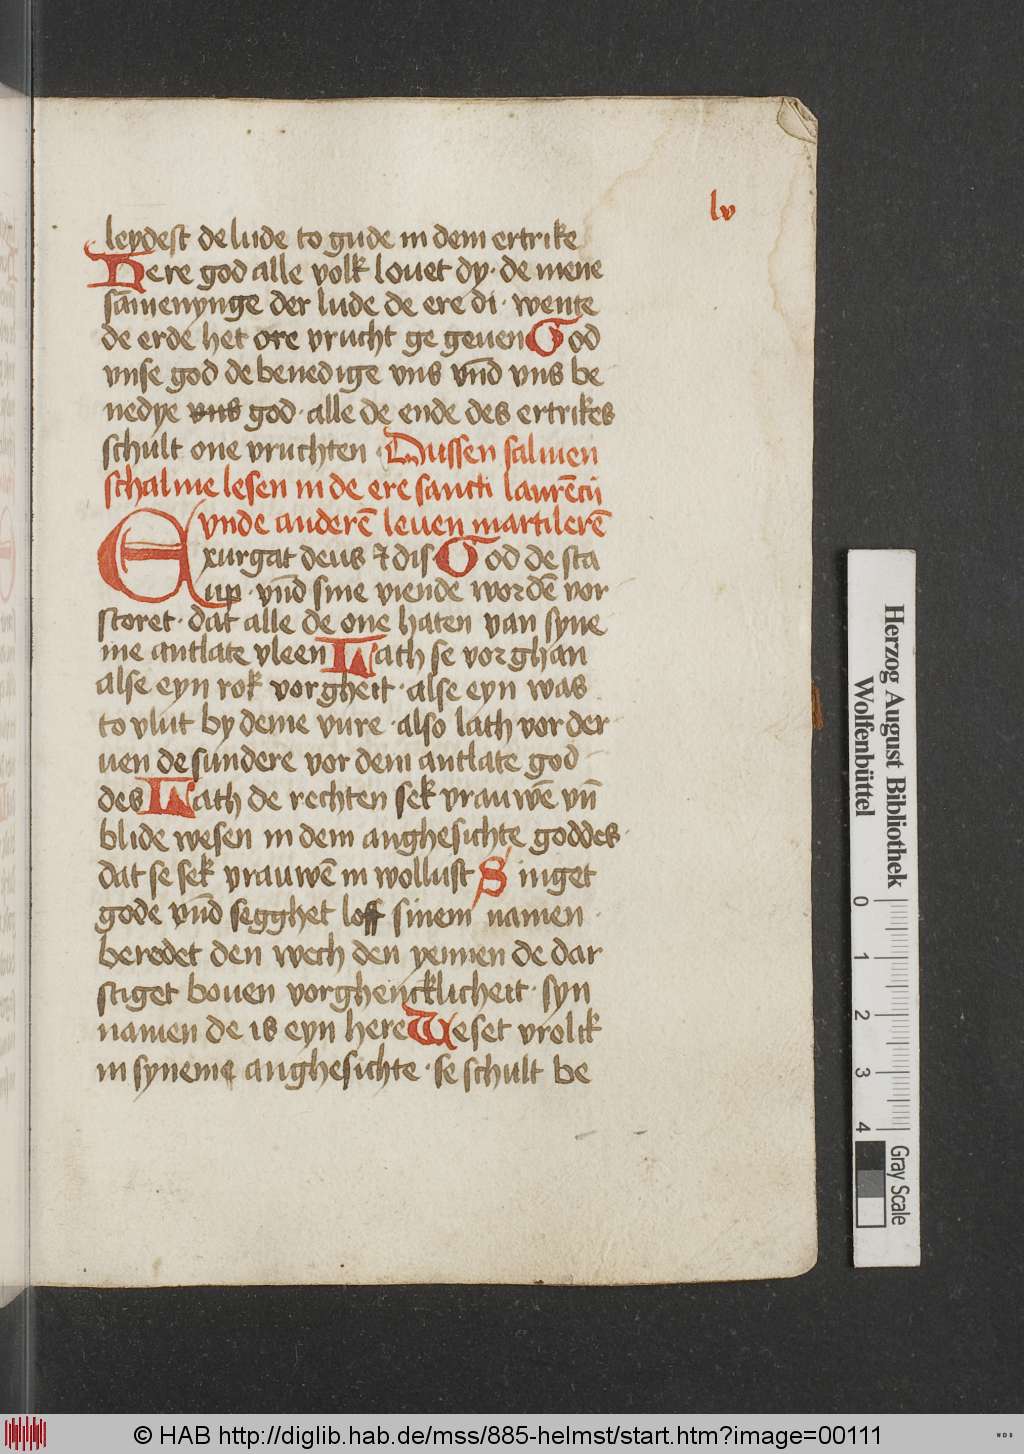 lv
leydest de lude to gude in dem ertrike
Here god alle volk louet dy · de mene
sāmenynge der lude de ere di · wente
de erde het ore vrucht ge geuen God
vnse god de benedige vns vn̄d vns be
nedye vns god · alle de ende des ertrikes
schult one vruchten · Dussen salmen
schalme lesen in de ere sancti laurēcij
vnde anderē leuen martilerē
Exurgat deus ⁊ dis God de sta
up · vn̄d sine viende wordē vor
storet · dat alle de one haten van syne
me antlate vleen Lath se vorghan
alse eyn rok vorgheit · alse eyn was
to vlut by deme vure · also lath vor der
uen de sundere vor dem antlate god
des Lath de rechten sek vrauwē vn̄
blide wesen in dem anghesichte goddes ·
dat se sek vrauwē in wollust Singet
gode vn̄d segghet loff sinem namen ·
beredet den wech den yennen de dar
stiget bouen vorghencklicheit · syn
namen de is eyn here Weset vrolick
in syneme anghesichte · se schult be
Herzog August Bibliothek
Wolfenbüttel
0 1 2 3 4
Gray Scale
© HAB http://diglib.hab.de/mss/885-helmst/start.htm?image=00111